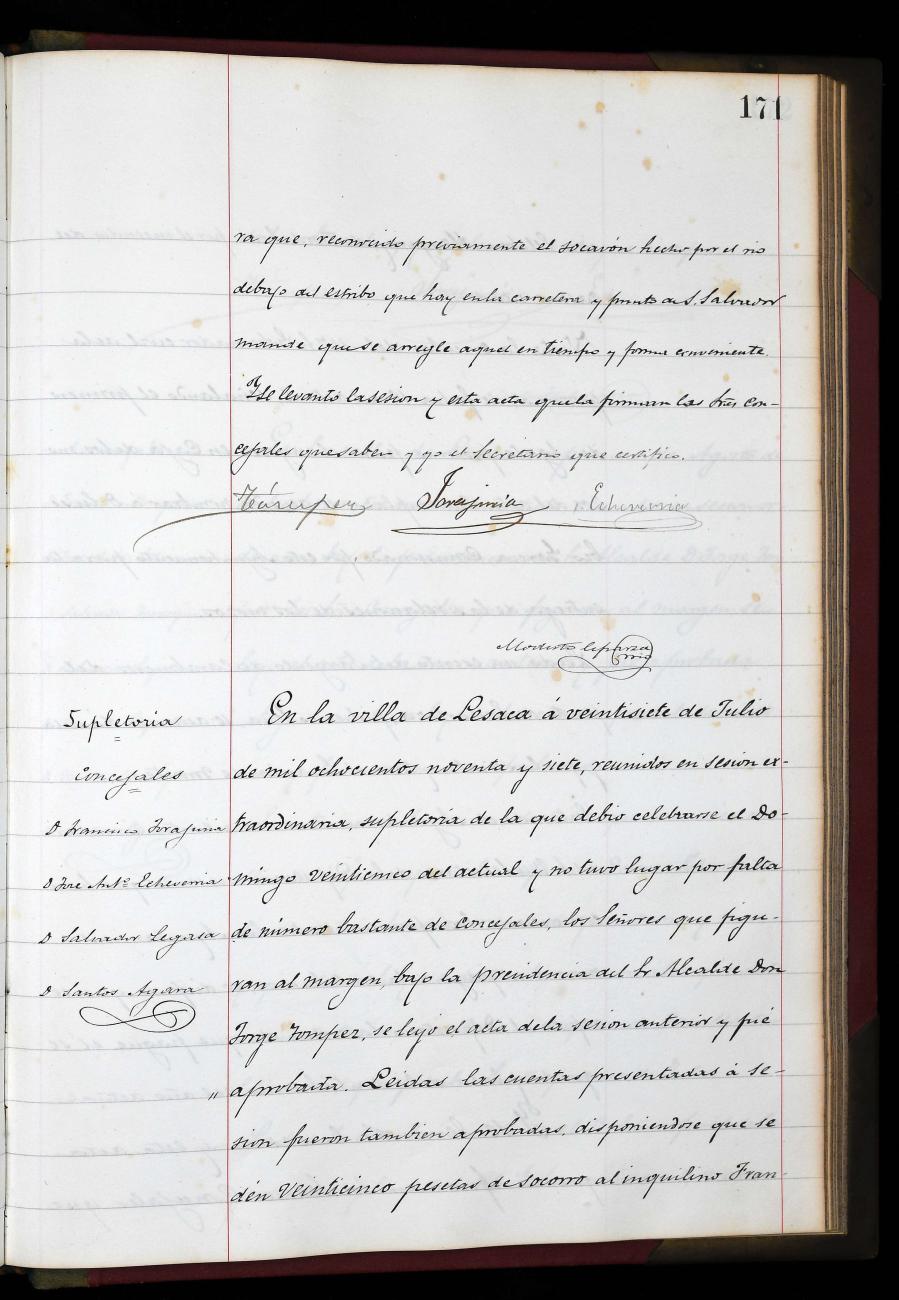 171
ra que, reconocido previamente el socavón hecho por el rio
debajo del estribo que hay en la carretera y punto de S. Salvador
mande que se arregle aquel en tiempo y forma conveniente.
Y se levantó la sesion y esta acta que la firman los tres con-
cejales que saben y yo el Secretario que certifico.
Irajuria Echeverria
Modesto
Supletoria
Concejales
D Francisco Irajuria
D Jose Antº Echeverria
D Salvador Legasa
D Santos Agara
En la villa de Lesaca á veintisiete de Julio
de mil ochocientos noventa y siete, reunidos en sesion ex-
traordinaria, supletoria de la que debio celebrarse el Do-
mingo veinticinco del actual y no tuvo lugar por falta
de número bastante de Concejales, los Señores que figu-
ran al margen, bajo la presidencia del Sr Alcalde Don
Jorge, se leyó el acta de la sesion anterior y fué
" aprobada. Leidas las cuentas presentadas á se-
sion fueron tambien aprobadas, disponiendose que se
dén Veinticinco pesetas de socorro al inquilino Fran-